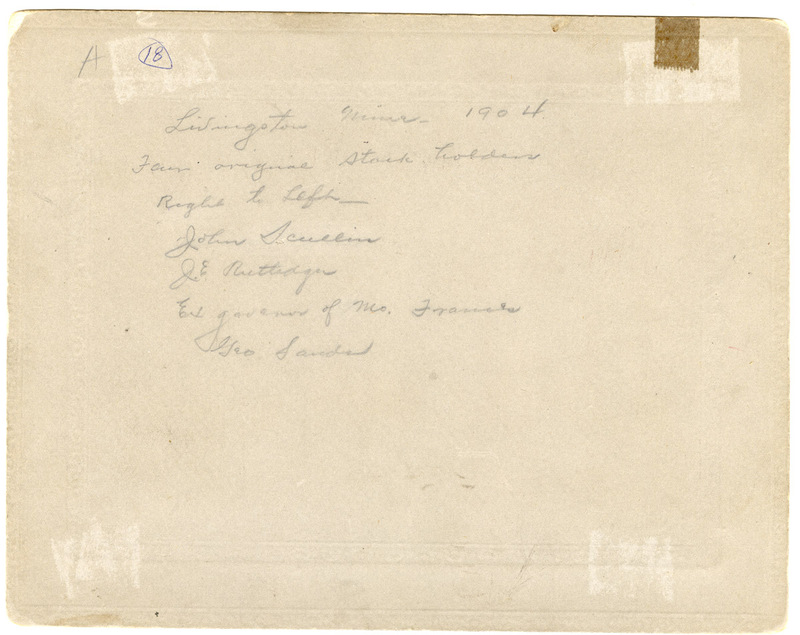 A 18
Livingston Mine - 1904
Four original stock holders
Right to Left —
John Scullin
J.E. Rutledge
Ex govenor of Mo. Francis
Geo Sands